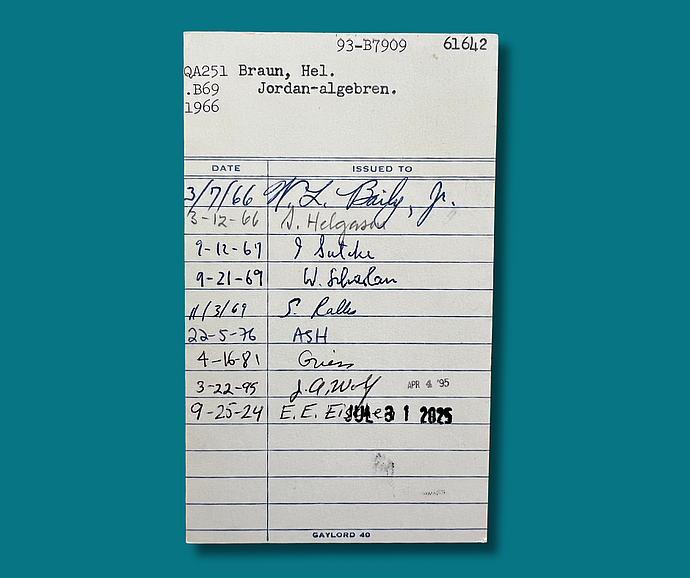 93-B7909 61642
QA251 Braun, Hel.
.B69 Jordan-algebren.
1966
DATE ISSUED TO
3/7/66 W. L. Baily, Jr.
3-12-66 S. Helgason
9-12-67
9-21-69 W. Scharlau
11/3/69 S. Rallis
22-5-76 ASH
4-16-81 Griess
3-22-95 J.A. Wolf APR 4 '95
9-25-24 E. E. JUL 31 2025
GAYLORD 40